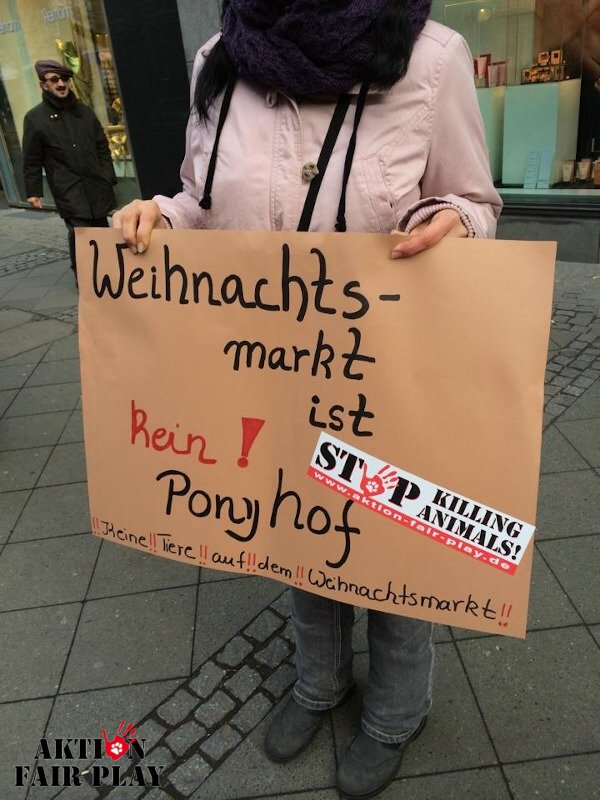 Weihnachts-
markt
ist
kein !
STOP KILLING
ANIMALS!
www.aktion-fair-play.de
Ponyhof
!! Keine !! Tiere !! auf !! dem !! Weihnachtsmarkt !!
AKTION
FAIR PLAY